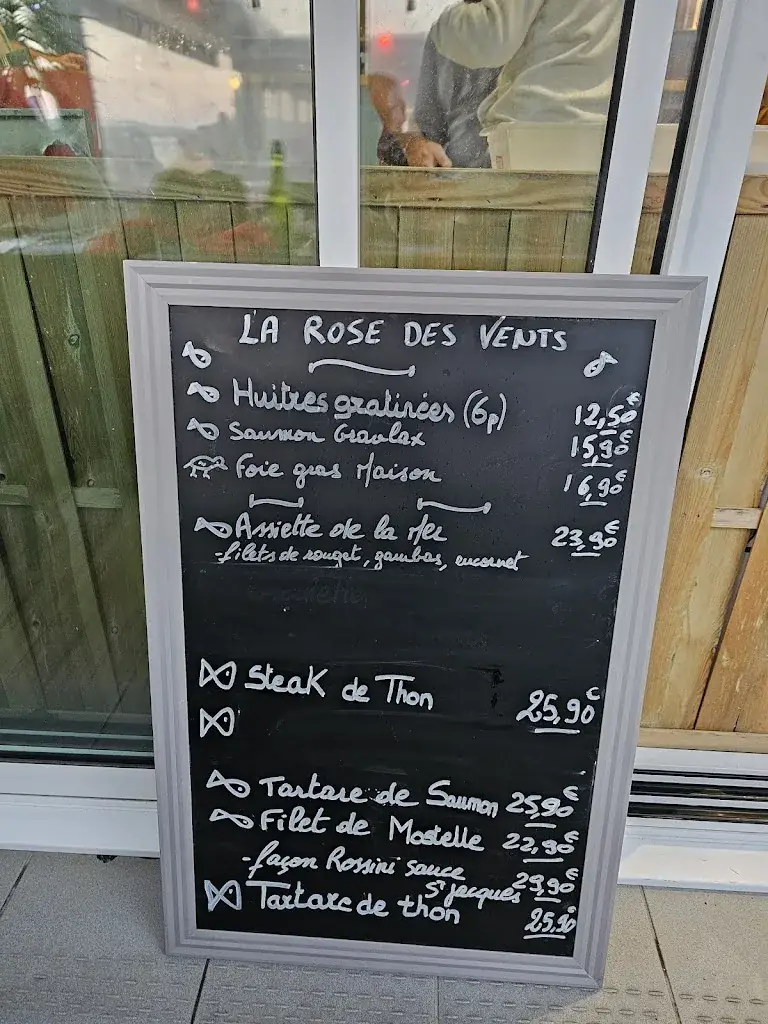 LA ROSE DES VENTS
Huitres gratinées (6p) 12,50€
Saumon Gravlax 15,90€
Foie gras Maison 16,90€
Assiette de la Mer 23,90€
-filets de rouget, gambas, encornet
Steak de Thon 25,90€
Tartare de Saumon 25,90€
Filet de Mostelle 22,90€
-façon Rossini sauce
St jacques 29,90€
Tartare de thon 25,90€